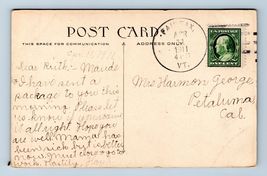 POST CARD
THIS SPACE FOR COMMUNICATION
ADDRESS ONLY.
FAIRFAX
APR
1911
VT.
Dear Ruth & Maude
I have sent a
package to you this
morning. Please let
us know if you receive
it all right. Hope you
are well. Mama has
been sick but is better
now. Must close & go to
work. Hastily,
Mrs Harmon George
Petaluma
Cal.